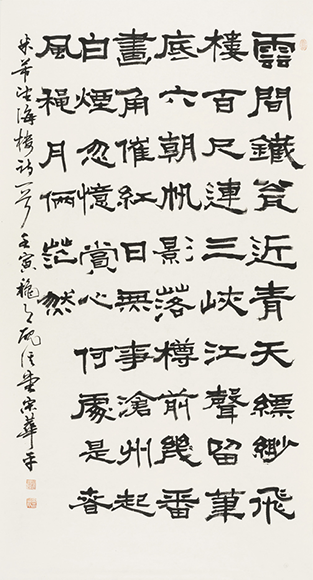 雲間鐵瓮近青天縹緲飛
樓百尺連三峽江聲留筆
底六朝帆影落樽前幾番
畫角催紅日無事滄州起
白煙忽憶賞心何處是春
風穐月倆茫然
米芾望海樓詩一首 壬寅穐 宋華平